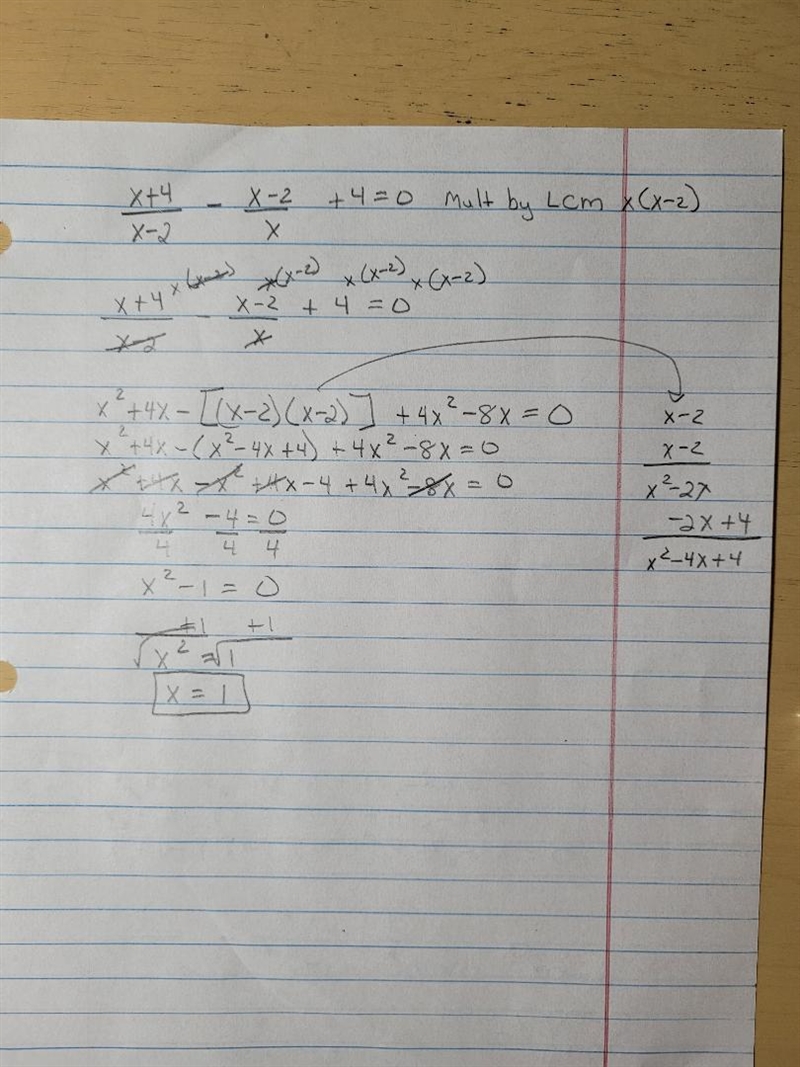 x+4/x-2 - x-2/x + 4 = 0 Mult by LCM x(x-2)
x(x-2) x(x-2) x(x-2) x(x-2)
x+4/x-2 - x-2/x + 4 = 0
x² + 4x - [(x-2)(x-2)] + 4x² - 8x = 0
x² + 4x - (x² - 4x + 4) + 4x² - 8x = 0
x² + 4x - x² + 4x - 4 + 4x² - 8x = 0
4x²/4 - 4/4 = 0/4
x² - 1 = 0
+1 +1
√x² = √1
x = 1
x-2
x-2
x² - 2x
-2x + 4
x² - 4x + 4